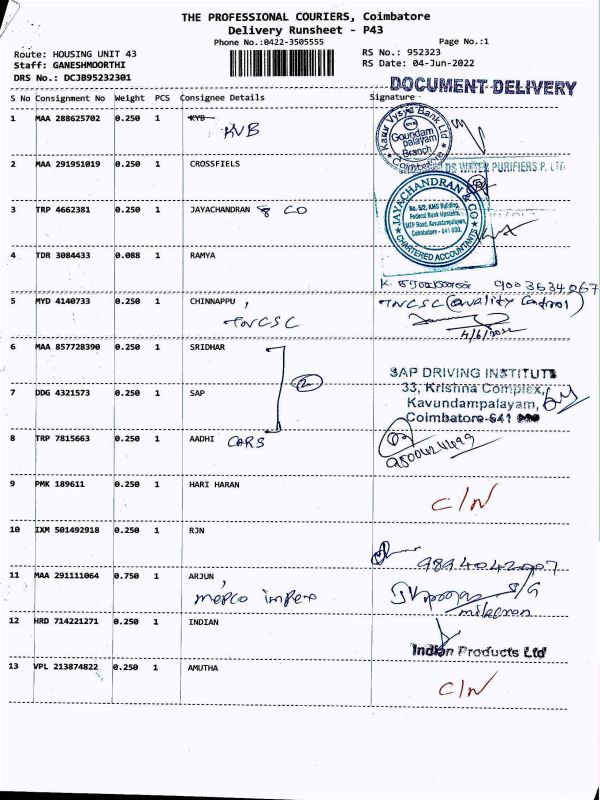 THE PROFESSIONAL COURIERS, Coimbatore
Delivery Runsheet - P43
Phone No.:0422-3505555
Page No.:1
Route: HOUSING UNIT 43
RS No.: 952323
Staff: GANESHMOORTHI
RS Date: 04-Jun-2022
DRS No.: DCJB95232301
DOCUMENT DELIVERY
S No Consignment No Weight PCS Consignee Details Signature
1 MAA 288625702 0.250 1 KYB
KVB
Karur Vysya Bank Ltd
Goundam palayam Branch
Coimbatore
2 MAA 291951019 0.250 1 CROSSFIELS
WATER PURIFIERS P. LTD
3 TRP 4662381 0.250 1 JAYACHANDRAN & CO
JAYACHANDRAN & CO
No. 5/2, KMS Building,
Federal Bank Upstairs,
MTP Road, Kavundampalayam,
Coimbatore - 641 030.
CHARTERED ACCOUNTANTS
4 TDR 3084433 0.088 1 RAMYA
9003634067
5 MYD 4140733 0.250 1 CHINNAPPU,
TNCSC
TNCSC (Quality Control)
4/6/2022
6 MAA 857728390 0.250 1 SRIDHAR
2
SAP DRIVING INSTITUTE
33, Krishna Complex,
7 DDG 4321573 0.250 1 SAP
Kavundampalayam,
Coimbatore-641
8 TRP 7815663 0.250 1 AADHI CARS
9500424499
9 PMK 189611 0.250 1 HARI HARAN
C/N
10 IXM 501492918 0.250 1 RJN
9894042007
11 MAA 291111064 0.750 1 ARJUN,
mepco impex
S/G
12 HRD 714221271 0.250 1 INDIAN
Indian Products Ltd
13 VPL 213874822 0.250 1 AMUTHA
C/N